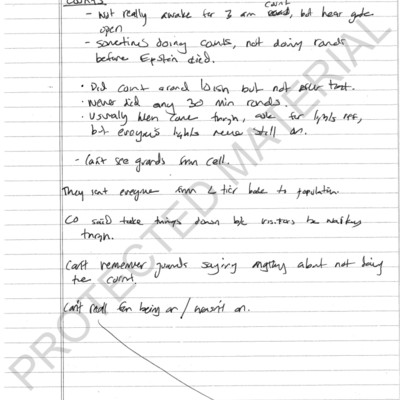 - Not really awake for 3 am count, but hear gate
open
- sometimes doing counts, not doing rounds
before Epstein died.
• Did count around 10ish but not after that.
• Never did any 30 min rounds.
• Usually when came through, ask for lights off,
but everyone's lights were still on.
- Can't see guards from cell.
They sent everyone from L tier back to population
CO said take things down b/c visitors be walking
through.
Can't remember guards saying anything about not doing
the count.
Can't recall fan being on / wasn't on.
PROTECTED MATERIAL